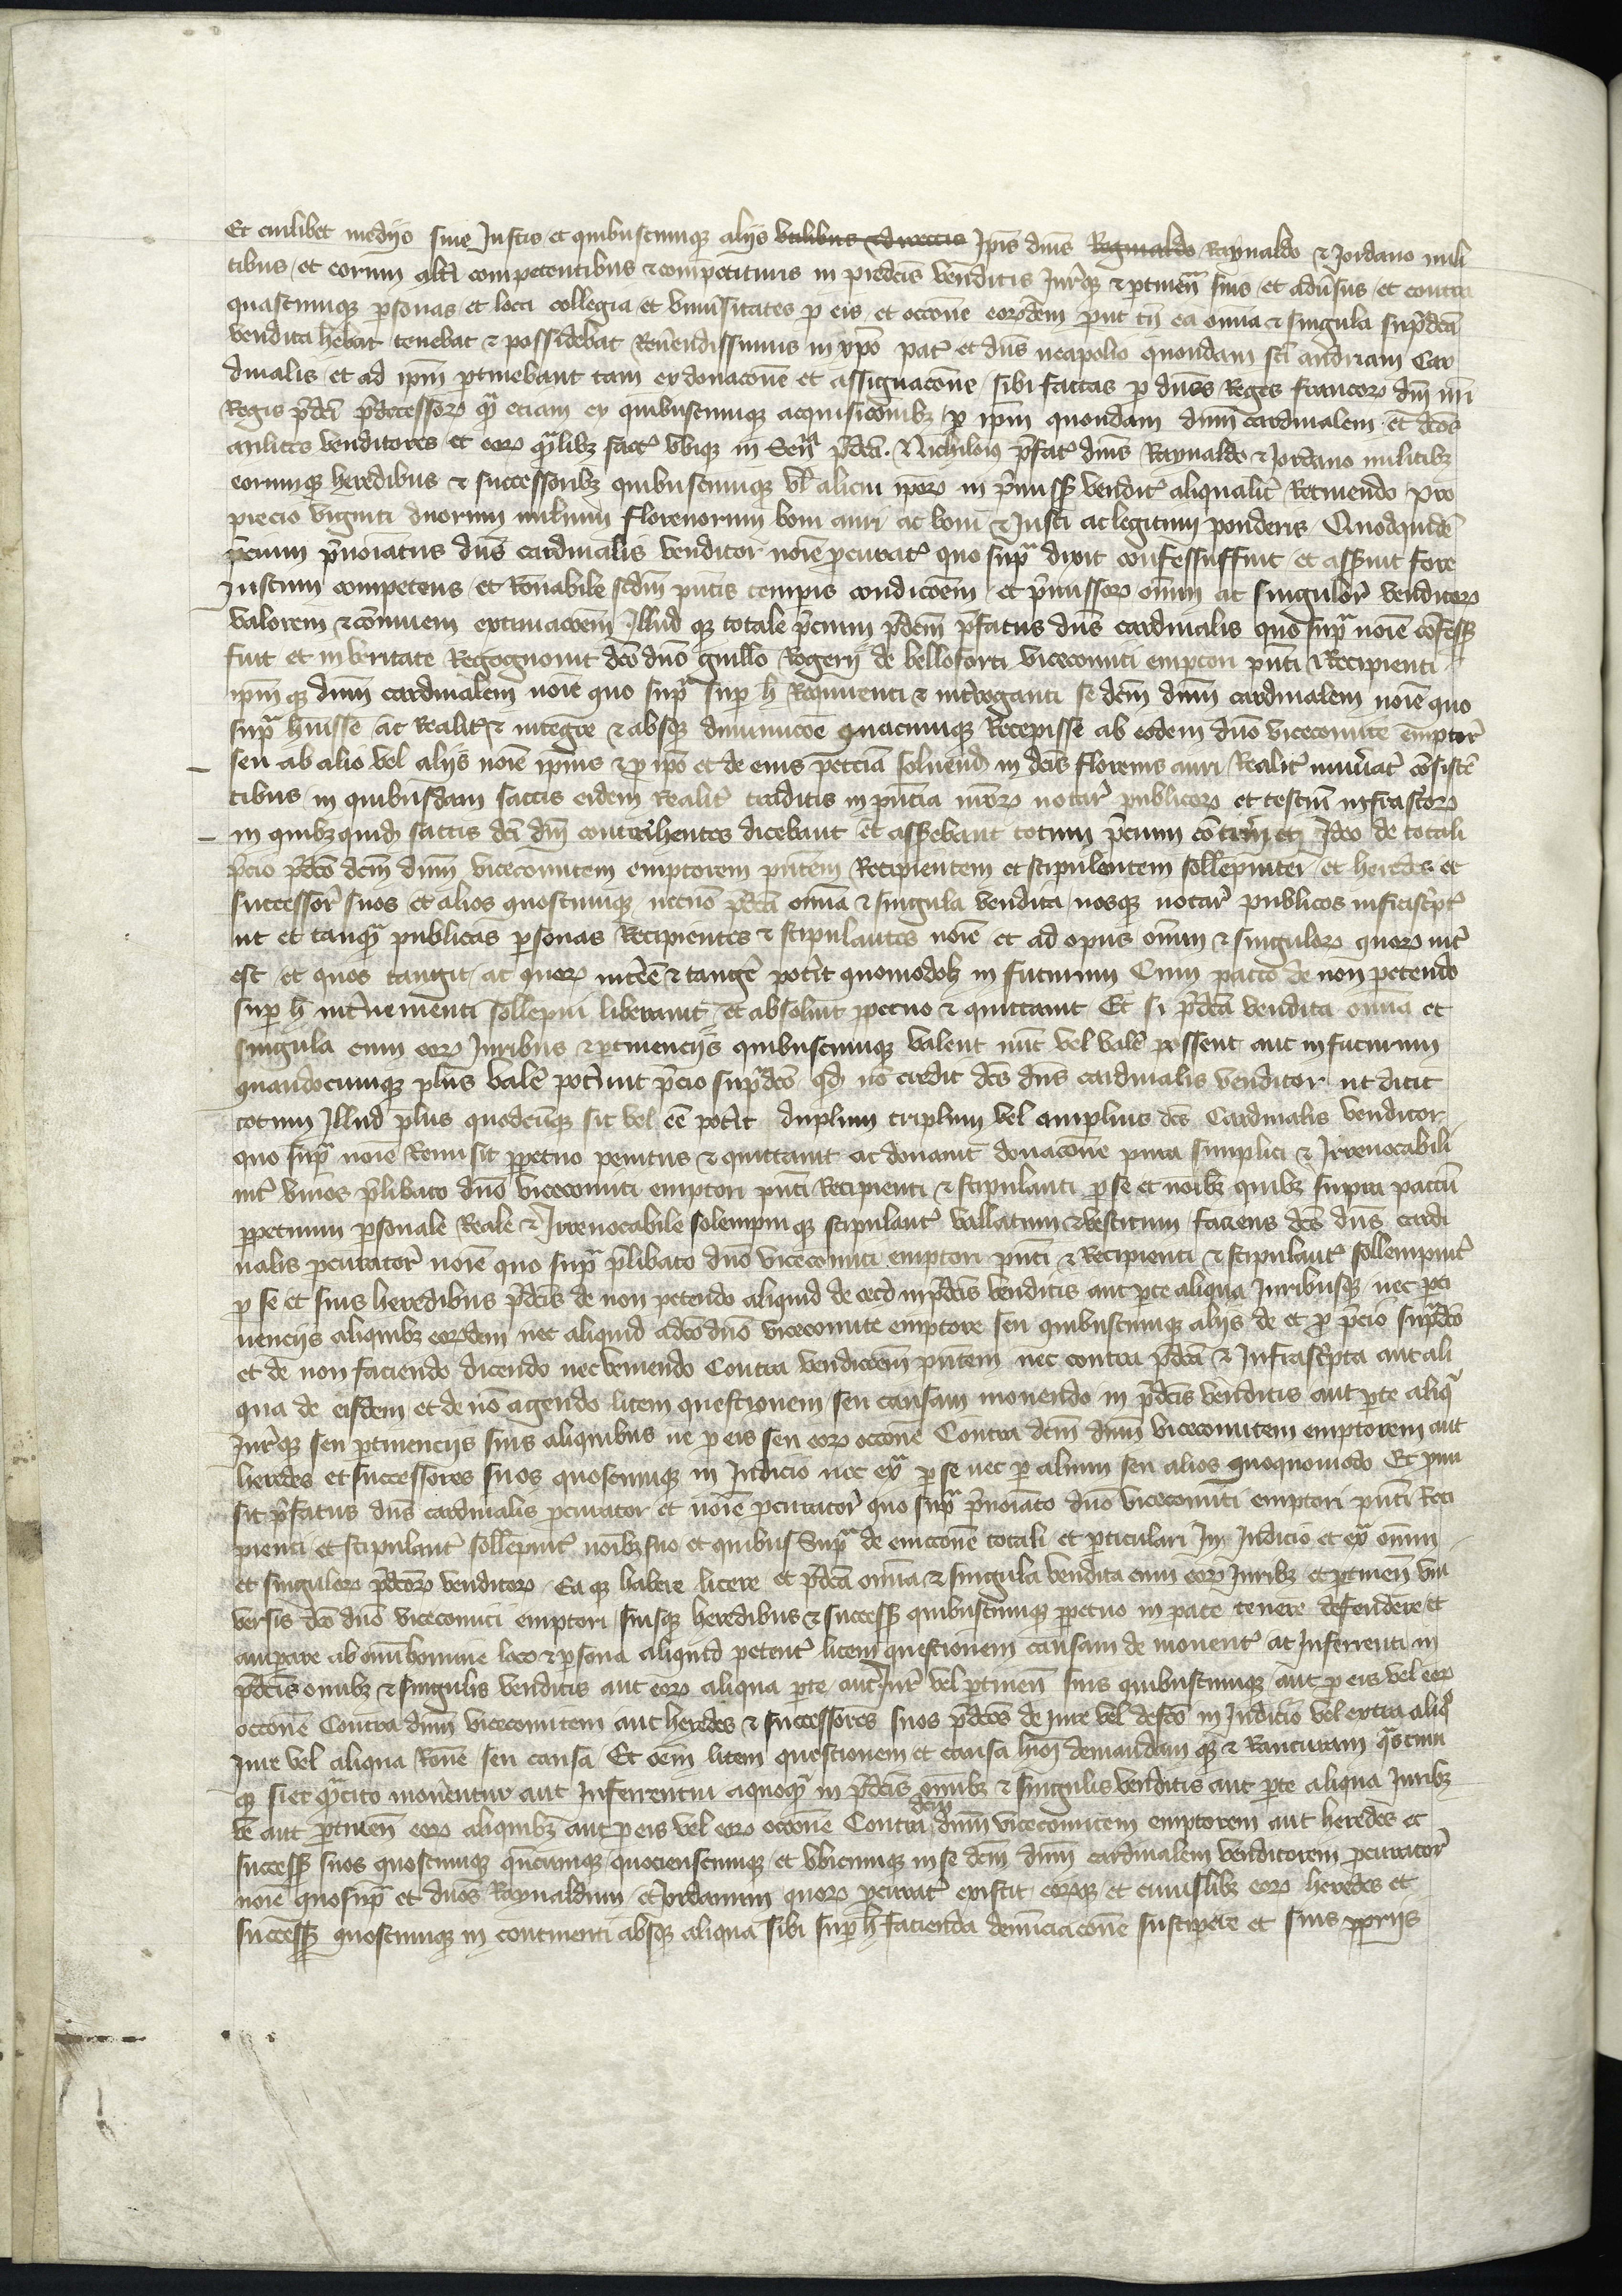 Et cuilibet medijo siue Justio et quibuscumque alijs vtilibus & directis Ip̄is dn̄is Reginaldo Raynaldo & Jordano mili
tibus et eorum alt̄i competentibus & competituris in predc̄is venditis Jur̄que & ꝑtinen̄ suis et adūsus et contra
quascumque ꝑsonas et loca collegia et vniūsitates ꝑ eis et occōne eorūdem prut tn̄ ea om̄ia & singula supᵃdc̄a
vendita hēbat tenebat & possidebat Reuēendissimus in xp̄o pat̄ et dn̄s neapolio quondam sc̄i adriani Car
dinalis et ad ip̄m ꝑtinebant tam ex donacōne et assignacōne sibi factas ꝑ dn̄os Reges francoꝝ dn̄i nr̄i
Regis p̄dc̄i p̄decessoꝝ qᵃ etiam ex quibuscumque acquisicōnibꝫ ꝑ ip̄m quondam dn̄m cardinalem et dc̄os
milites venditores et eoꝝ qᵃlibꝫ fact̄ vbique in Sen̄ p̄dc̄a. Nichiloiꝰ p̄fat̄ dn̄is Raynaldo & Jordano militibꝫ
eorumque heredibus & successoribꝫ quibuscumque vl̄ alicui ip̄oꝝ in p̄miss̄ vendit̄ aliqualit̄ Retinendo Pro
precio viginti duorum milium florenorum boni auri ac boni & Justi ac legitimi ponderis Quodquidē
p̄cium p̄noīatus dn̄s cardinalis venditor noīe ꝓcurat̄ quo supᵃ dixit confessussuit et ass̄uit fore
Justum competens et Rōnabile scd̄m pn̄tis tempis condicōem et p̄missoꝝ om̄ium ac singuloꝝ venditoꝝ
valorem & cōmunem extimacōem Illud que totale p̄cium p̄dc̄m p̄fatus dn̄s cardinalis quo supᵃ noīe cōfess̄
fuit et in veritate Recognouit dc̄o dn̄o guill̄o Rogerij de belloforti vicecomiti emptori pn̄ti & Recipienti
ip̄m que dn̄m cardinalem noīe quo supᵃ suꝑ h̄ Requirenti & int̄roganti se dc̄m dn̄m cardinalem noīe quo
supᵃ hūisse ac Realit̄ & integre & absque diminucōe quacumque Recepisse ab eodem dn̄o vicecomite emptor̄
seu ab alio vel alijs noīe ip̄ius & ꝑ ip̄o et de eius peccia soluend̄ in dc̄is florenis auri Realit̄ nuūat̄ cōsistē
tibus in quibusdam saccis eidem Realit̄ traditis in pn̄cia nr̄oꝝ notar̄ publicoꝝ et testiū infrascᵖtoꝝ
in quibꝫ quid̄ saccis dc̄i dn̄i contrahentes dicebant et ass̄ebant totum p̄cium cōtin̄eri Ideo de totali
p̄cio p̄dc̄o dc̄m dn̄m vicecomitem emptorem pn̄tem Recipientem et stipulantem sollēpniter et heredes et
successor̄ suos et alios quoscumque necnō p̄dc̄a om̄ia & singula vendita nosque notar̄ publicos infrascᵖt̄
ut et tanqᵃ publicas ꝑsonas Recipientes & stipulantes noīe et ad opus om̄ium & singuloꝝ quoꝝ int̄
est et quos tangit ac quoꝝ int̄ēe & tanḡe pot̄it quomodolꝫ in futurum Cum pacto de non petendo
suꝑ h̄ int̄uenienti sollēpni liberauit et absoluit ꝑpetuo & quittauit Et si p̄dc̄a vendita om̄ia et
singula cum eoꝝ Juribus & ꝑtinencijs quibuscumque valent nūc vel valē possent aut in futurum
quandocumque plus valē pot̄unt p̄cio supᵃdc̄o qd̄ nō credit dc̄s dn̄s cardinalis venditor ut dicit
totum Illud plus quodcūque sit vel ēe pot̄it duplum triplum vel amplius dc̄s Cardinalis venditor
quo supᵃ noīe Remisit ꝑpetuo penitus & quittauit ac donauit donacōne pura simplici & Irreuocabili
int̄ viuos p̄libato dn̄o vicecomiti emptori pn̄ti Recipienti & stipulanti ꝑ se et noībꝫ quibꝫ supra pactū
ꝑpetuum ꝑsonale Reale & Irreuocabile solempni que stipulant̄ vallatum & vestitum faciens dc̄s dn̄s cardi
nalis ꝓcurator̄ noīe quo supᵃ p̄libato dn̄o vicecomiti emptori pn̄ti & Recipienti & stipulant̄ sollempnit̄
ꝑ se et suis heredibus p̄dc̄is de non petendo aliquid de cet̄o in p̄dc̄is venditis aut ꝑte aliqua Juribusque nec ꝑti
nencijs aliquibꝫ eorūdem nec aliquid a dc̄o dn̄o vicecomite emptore seu quibuscumque alijs de et ꝑ p̄cio supᵃdc̄o
et de non faciendo dicendo nec veniendo Contra vendicōem pn̄tem nec contra p̄dc̄a & Infrascᵖta aut ali
qua de eisdem et de nō agendo litem questionem seu causam mouendo in p̄dc̄is venditis aut ꝑte aliqᵃ
Jur̄que seu ꝑtinencijs suis aliquibus ne ꝑ eis seu eoꝝ occōne Contra dc̄m dn̄m vicecomitem emptorem aut
heredes et successores suos quoscumque in Judicio nec exᵃ ꝑ se nec ꝑ alium seu alios quoquomodo Et ꝓmi
sit p̄fatus dn̄s cardinalis ꝓcurator et noīe ꝓcurator̄ quo supᵃ p̄noīato dn̄o vicecomiti emptori pn̄ti Reci
pienti et stipulant̄ sollēpnit̄ noībꝫ suo et quibus Supᵃ de euiccōne totali et ꝑticulari In Judicio et exᵃ om̄ium
et singuloꝝ p̄dc̄oꝝ venditoꝝ Ea que habere licere et p̄dc̄a om̄ia & singula vendita cum eoꝝ Juribꝫ et ꝑtinen̄ vni
versis dc̄o dn̄o vicecomiti emptori suisque heredibus & success̄ quibuscumque ꝑpetuo in pace tenere defendere et
amparare ab om̄i homine loco & ꝑsona aliquid petent̄ litem questionem causam de mouent̄ ac Inferrenti in
p̄dc̄is om̄ibꝫ & singulis venditis aut eoꝝ aliqua ꝑte aut Jur̄ vel ꝑtinen̄ suis quibuscumque aut ꝑ eis vel eoꝝ
occōne Contra dn̄m vicecomitem aut heredes & successores suos p̄dc̄os de Jure vel de fc̄o in Judicio vel extra aliqᵒ
Jure vel aliqua Rōne seu causa Et oēm litem questionem et causā hmōi demandam que & Rancuram qᵃscum
que si et qᵃcito mouerentur aut Inferrentur a quoqᵃ in p̄dc̄is om̄ibꝫ & singulis venditis aut ꝑte aliqua Juribꝫ
ve aut ꝑtinen̄ eoꝝ aliquibꝫ aut ꝑ eis vel eoꝝ occōne Contra dc̄m dn̄m vicecomitem emptorem aut heredes et
success̄ suos quoscumque qn̄cumque quocienscumque et vbicumque in se dc̄m dn̄m cardinalem venditorem ꝓcurator̄
noīe quo supᵃ et dn̄os Raynaldum et Jordanum quoꝝ ꝓcurat̄ existit eoꝝque et cuiuslibꝫ eoꝝ heredes et
success̄ quoscumque in continenti absque aliqua sibi suꝑ h̄ facienda denūciacōne suscipere et suis ꝓprijs